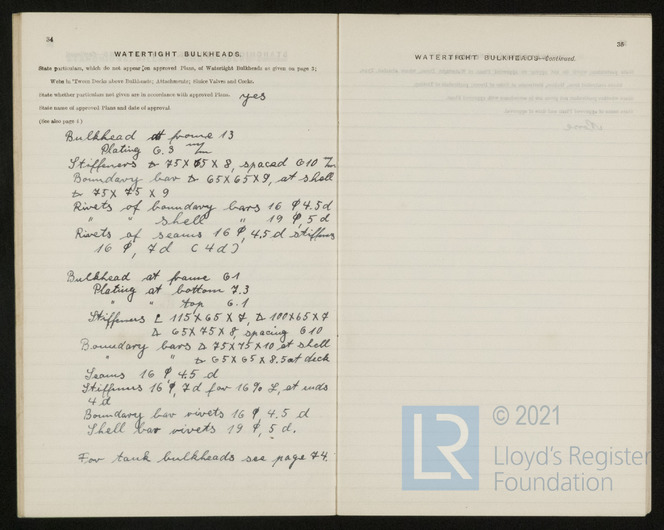 34
WATERTIGHT BULKHEADS.
State particulars, which do not appear on approved Plans, of Watertight Bulkheads as given on page 3;
Webs in 'Tween Decks above Bulkheads; Attachments; Sluice Valves and Cocks.
State whether particulars not given are in accordance with approved Plans. yes
State name of approved Plans and date of approval.
(See also page 4.)
Bulkhead at frame 13
Plating 6.3 m/m
Stiffeners 75 X 65 X 8, spaced 610 m/m
Boundary bar 65 X 65 X 9, at shell
75 X 75 X 9
Rivets of boundary bars 16 φ 4.5 d
" " shell " 19 φ, 5 d
Rivets of seams 16 φ, 4.5 d stiffeners
16 φ, 7 d ( 4 d )
Bulkhead at frame 61
Plating at bottom 7.3
" " top 6.1
Stiffeners L 115 X 65 X 7, 100 X 65 X 7
65 X 75 X 8, spacing 610
Boundary bars 75 X 75 X 10 at shell
" " 65 X 65 X 8.5 at deck
Seams 16 φ 4.5 d
Stiffeners 16 φ, 7 d for 16 % L, at ends
4 d
Boundary bar rivets 16 φ, 4.5 d
Shell bar rivets 19 φ, 5 d.
For tank bulkheads see page 74.
35
WATERTIGHT BULKHEADS—continued.
LR
© 2021
Lloyd's Register
Foundation